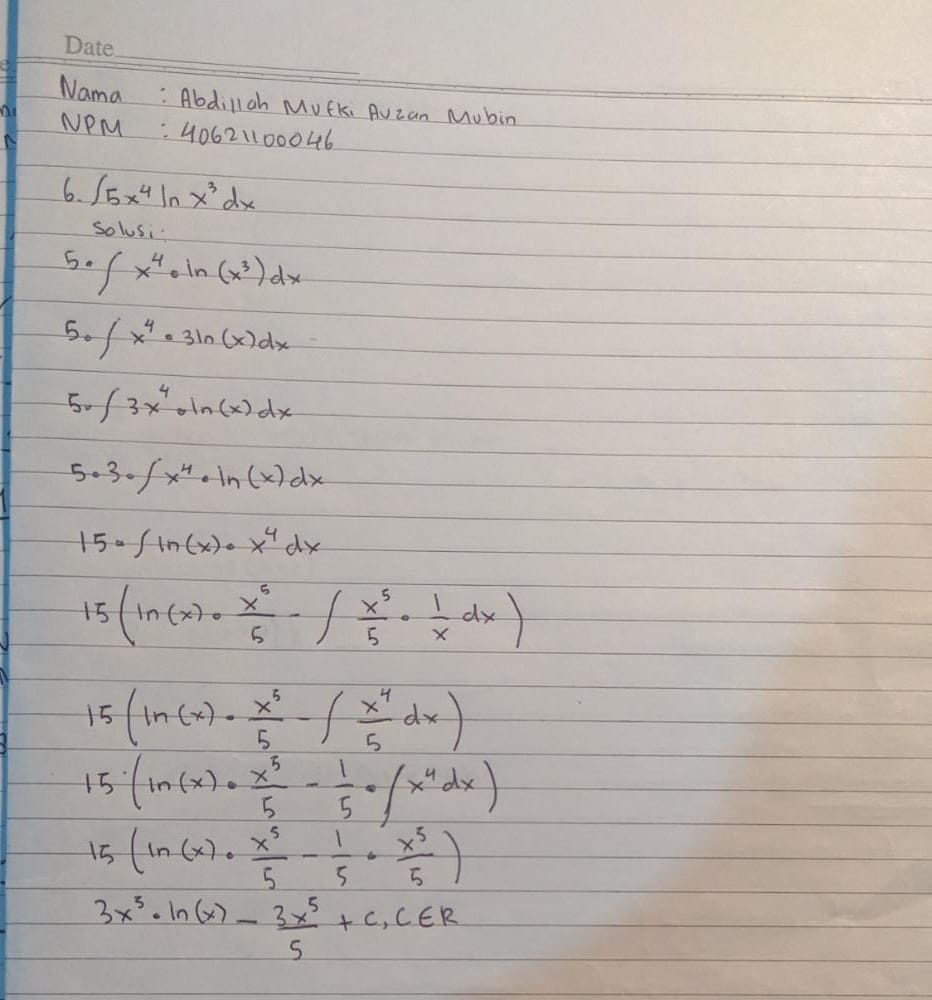 Date
Nama : Abdillah Mufki Auzan Mubin
NPM : 40621100046
6. ∫5x⁴ ln x³ dx
Solusi:
5•∫ x⁴•ln(x³)dx
5•∫ x⁴•3ln(x)dx
5•∫ 3x⁴•ln(x)dx
5•3•∫x⁴•ln(x)dx
15•∫ln(x)•x⁴dx
15(ln(x)•x⁵/5 - ∫ x⁵/5 • 1/x dx)
15(ln(x)•x⁵/5 - ∫ x⁴/5 dx)
15(ln(x)•x⁵/5 - 1/5•∫x⁴dx)
15(ln(x)•x⁵/5 - 1/5•x⁵/5)
3x⁵•ln(x) - 3x⁵/5 + C, C∈R